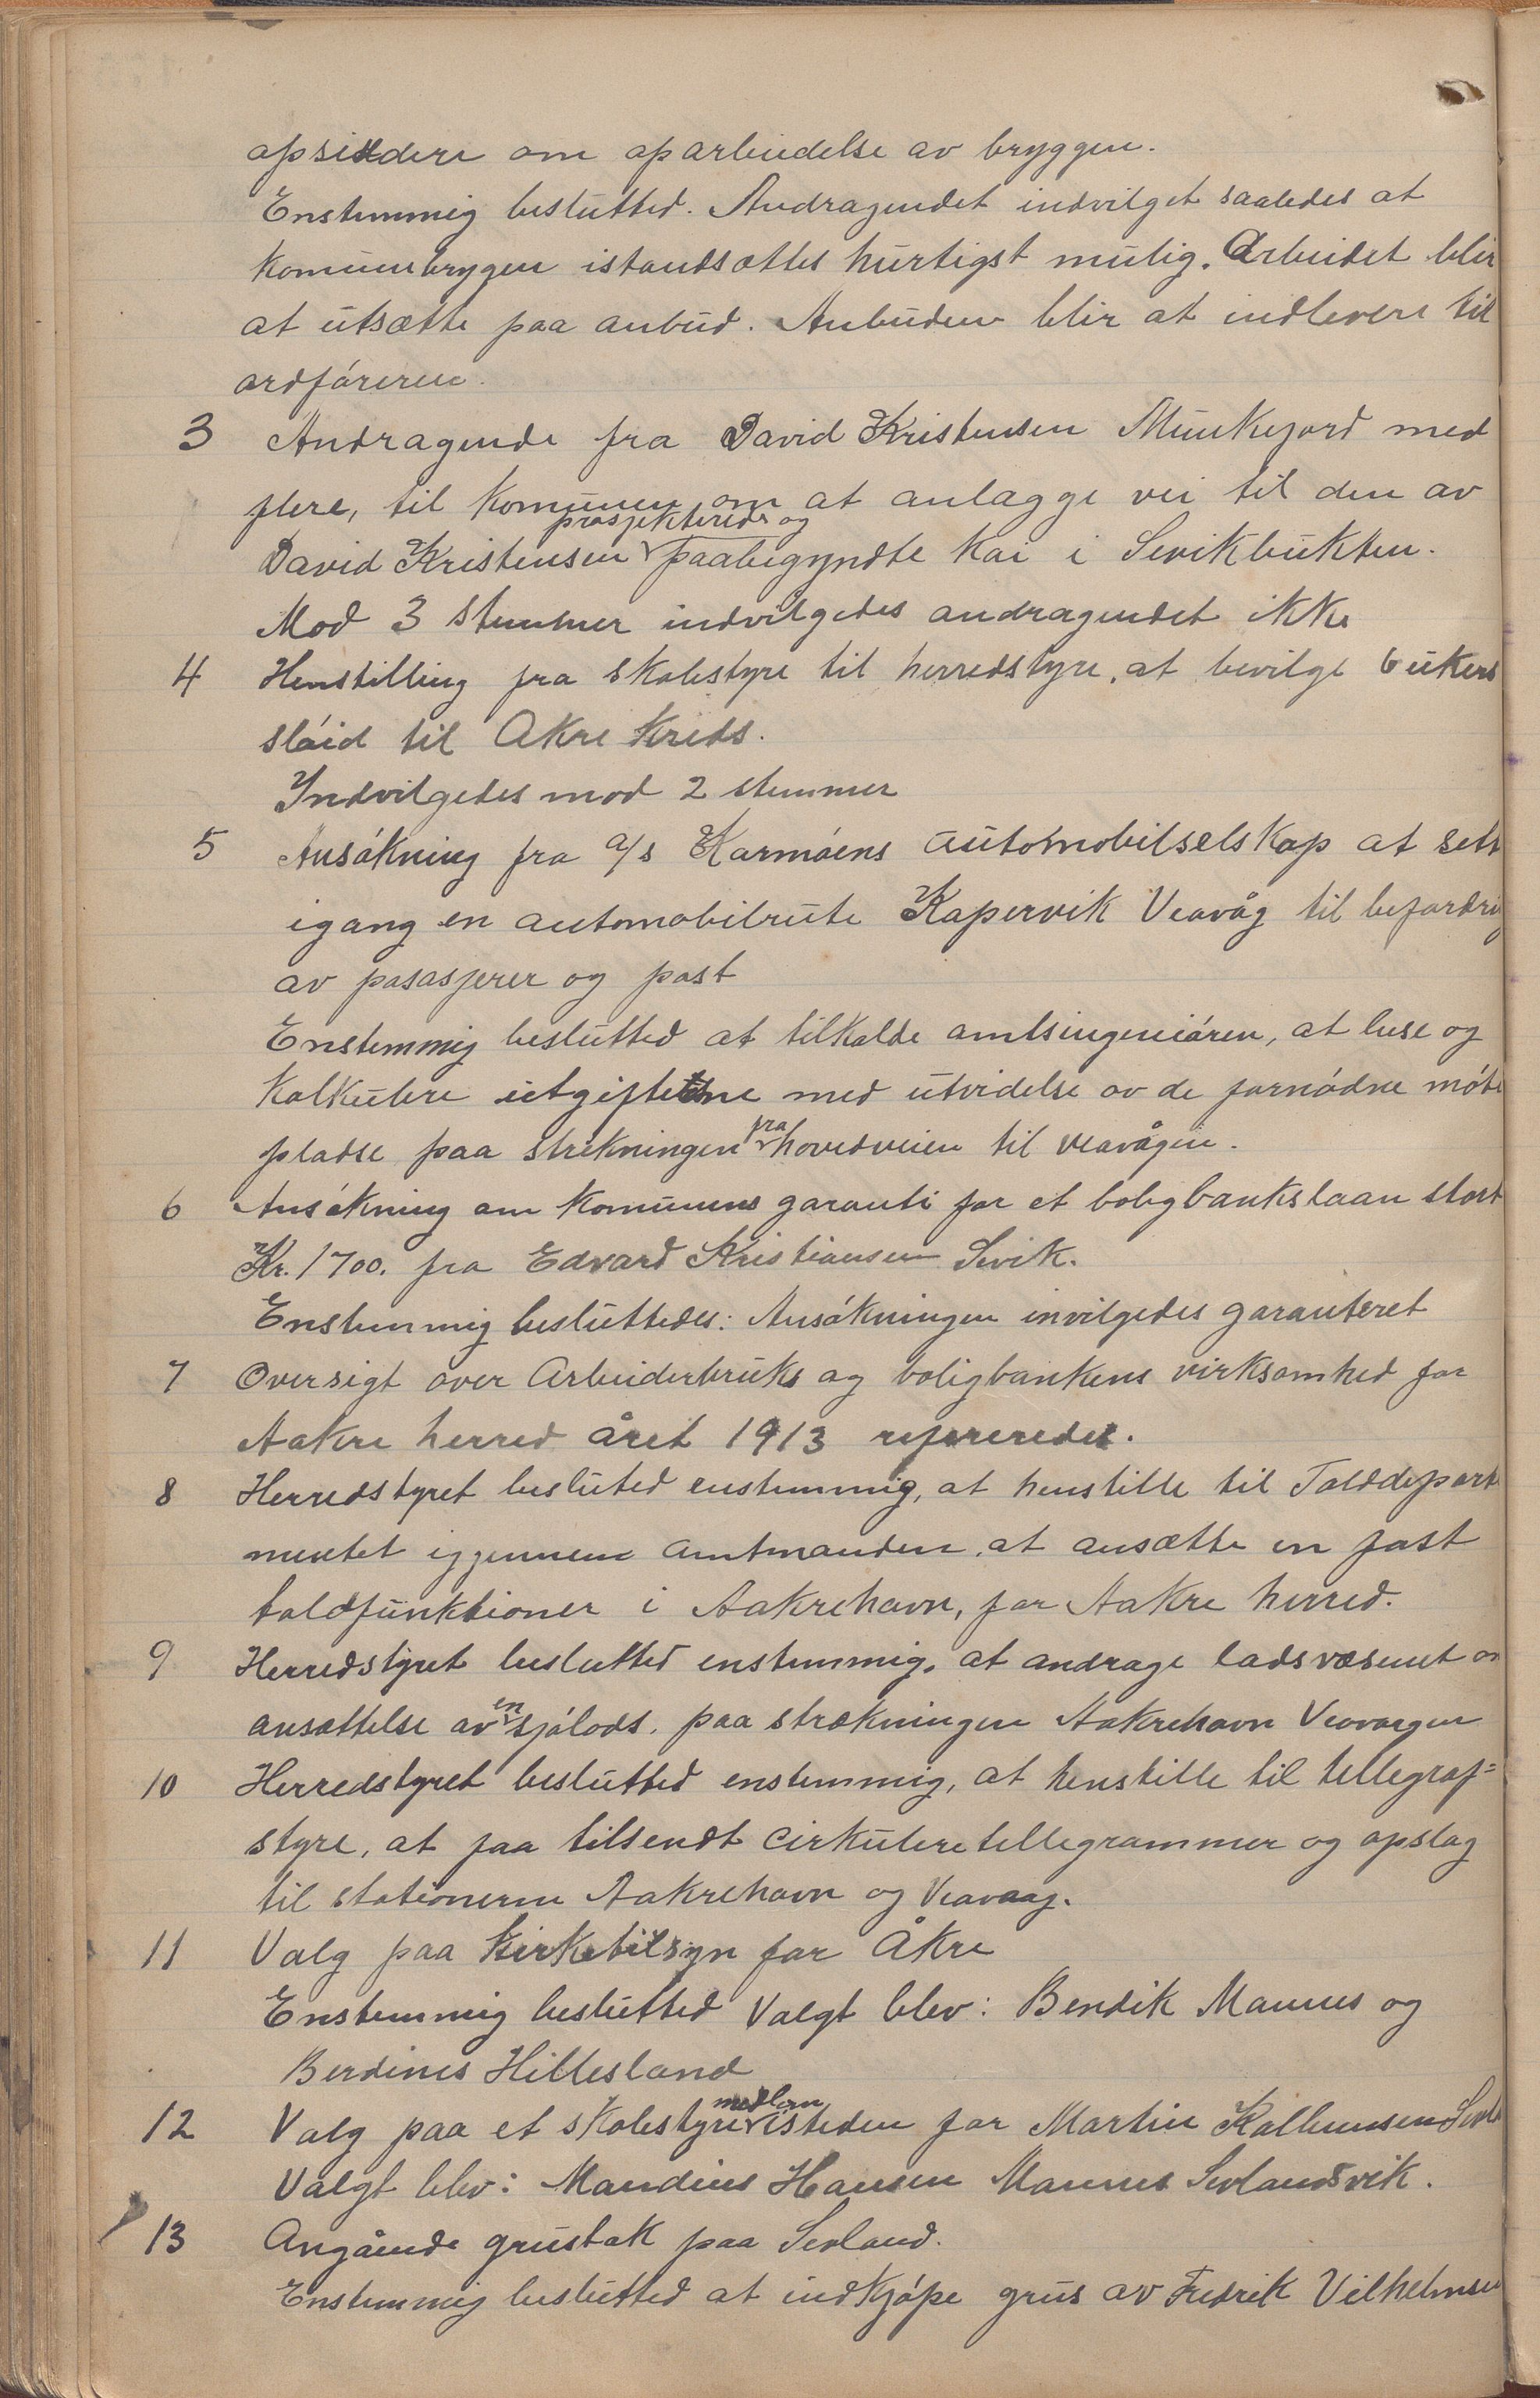 opsiddere om oparbeidelse av bryggen.
Enstemmig beslutted. Andragendet indvilget saaledes at
komunebrygen istandsættes hurtigst mulig. Arbeidet blir
at utsætte paa anbud. Anbudene blir at indlevere til
ordføreren.
3 Andragende fra David Kristensen Munkejord med
flere, til komunen om at anlægge vei til den av
David Kristensen prosjekterede og paabegyndte kai i Sevikbukten.
Mod 3 stemmer indvilgedes andragendet ikke
4 Henstilling fra skolestyre til herredstyre, at bevilge 6 ukers
sløid til Akre kreds.
Indvilgedes mod 2 stemmer
5 Ansøkning fra a/s Karmøens automobilselskap at sette
igang en automobilrute Kopervik Veavåg til befordring
av pasasjerer og post
Enstemmig beslutted at tilkalde amtsingeniøren, at bese og
kalkulere utgifterne med utvidelse av de fornødne møte
pladse paa strekningen fra hovedveien til veavågen.
6 Ansøkning om komunens garanti for et boligbankslaan stort
Kr. 1700. fra Edvard Kristiansen Sevik.
Enstemmig besluttedes: Ansøkningen invilgedes garanteret
7 Oversigt over Arbeiderbruks og boligbankens virksomhed for
Aakre herred året 1913 refereredes.
8 Herredstyret besluted enstemmig, at henstille til Tolddeparte
mentet igjennem amtmanden, at ansætte en fast
toldfunktioner i Aakrehavn, for Aakre herred.
9 Herredstyret besluttet enstemmig, at andrage lodsvæsenet om
ansættelse av en sjølods, paa strækningen Aakrehavn Veavaagen
10 Herredstyret beslutted enstemmig, at henstille til tellegraf=
styre, at faa tilsendt cirkuleretellegrammer og opslag
til stationerne Aakrehavn og Veavaag.
11 Valg paa Kirketilsyn for Åkre
Enstemmig beslutted Valgt blev: Bendik Mannes og
Berdines Hillesland
12 Valg paa et skolestyremedlem isteden for Martin Kallemsen
Valgt blev: Mandius Hansen Mannes Sevlandsvik.
13 Angående grustak paa Sevland.
Enstemmig beslutted at indkjøpe grus av Fredrik Vilhelmsen